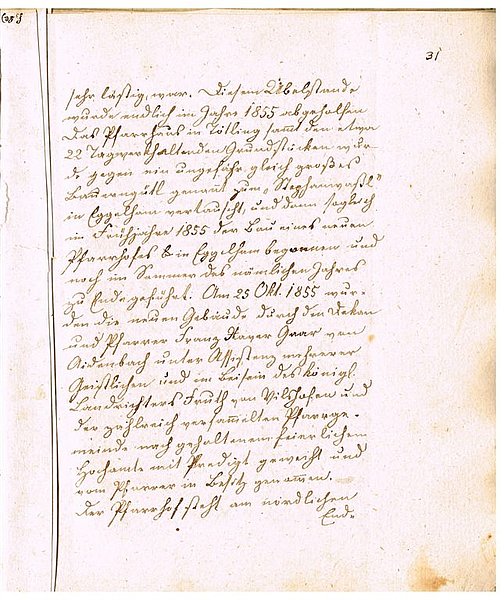 31
sehr lästig, war. Diesem Übelstande
wurde endlich im Jahre 1855 abgeholfen
Das Pfarrhaus in Tötling samt den etwa
22 Tagwerk haltenden Grundstücken wur-
de gegen ein ungefähr gleich großes
Bauerngütl genannt zum „
in Eggelham vertauscht, und dann sogleich
im Frühjahre 1855 der Bau eines neuen
Pfarrhofes in Eggelham begonnen und
noch im Sommer des nämlichen Jahres
zu Ende geführt. Am 25 Okt. 1855 wur-
den die neuen Gebäude durch den Dekan
und Pfarrer Franz Xaver Gaar von
Aidenbach unter Assistenz mehrerer
Geistlichen und im Beisein des königl.
Landrichters Fruth von Vilshofen und
der zahlreich versammelten Pfarrge-
meinde nach gehaltenem feierlichem
Hochamte mit Predigt geweiht und
vom Pfarrer in Besitz genommen.
Der Pfarrhof steht am nördlichen
End-